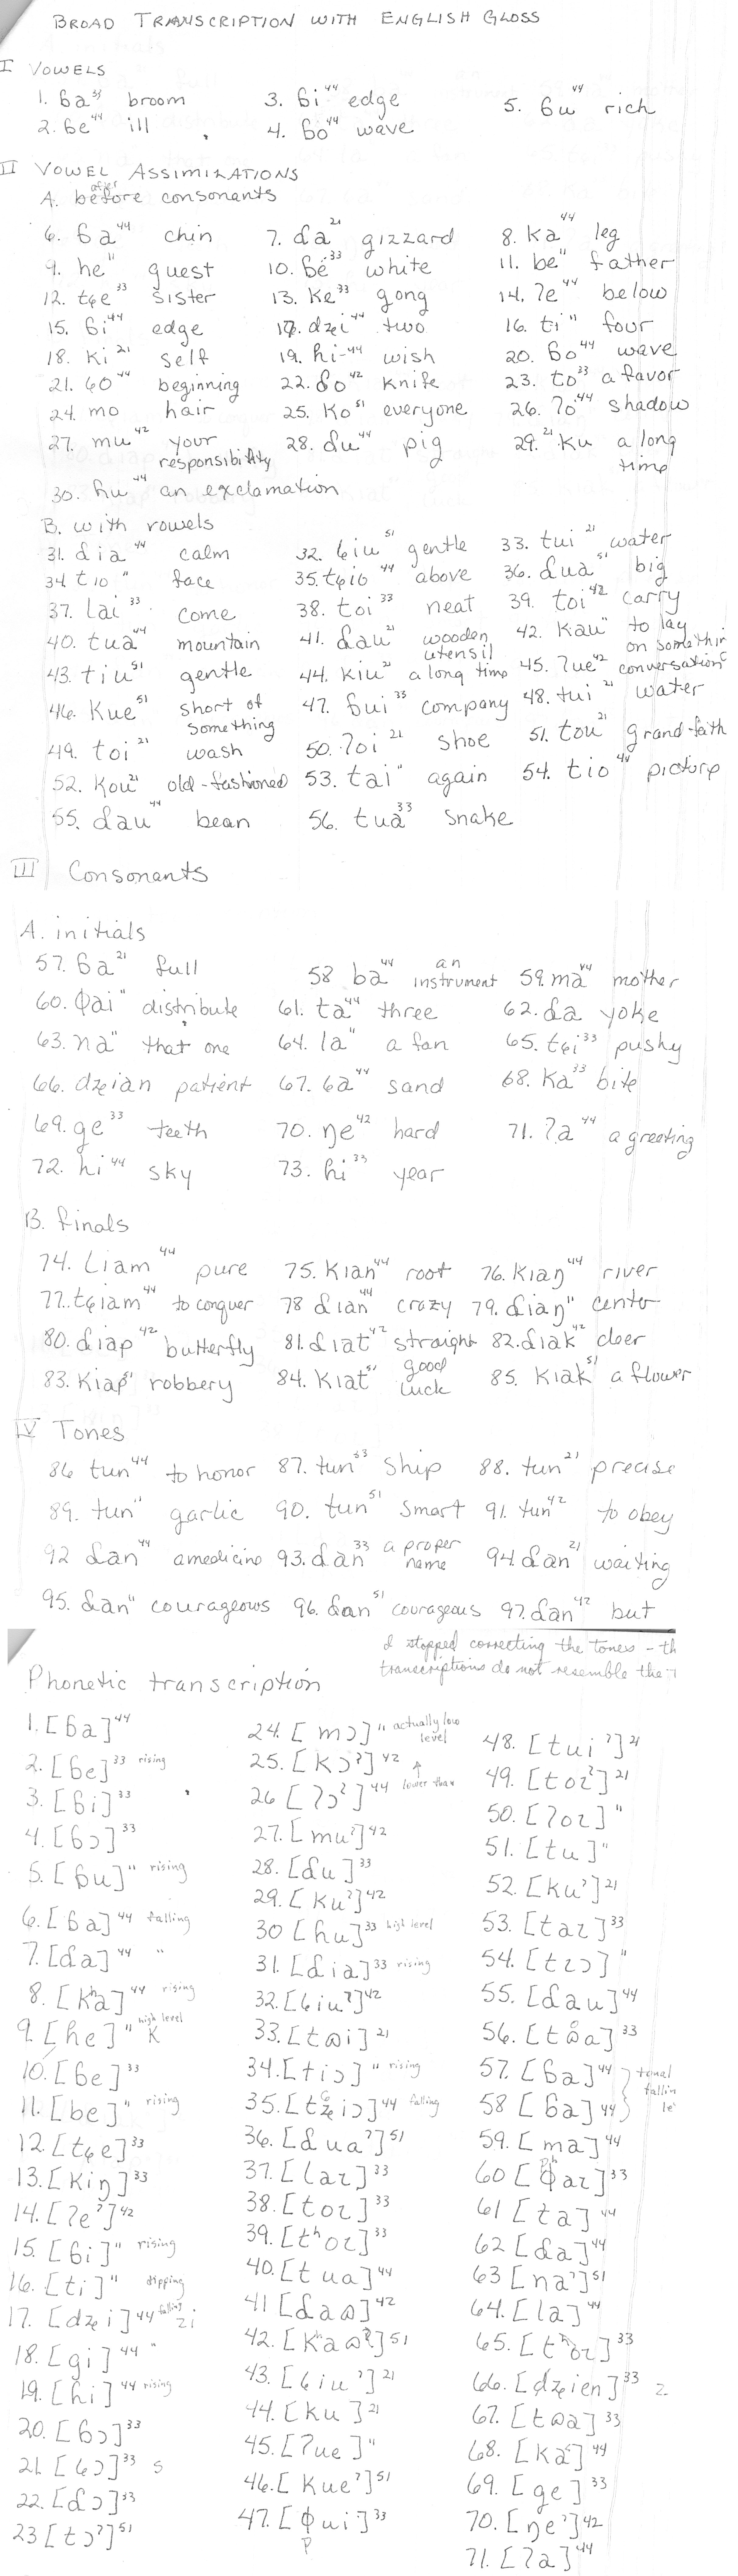 BROAD TRANSCRIPTION WITH ENGLISH GLOSS
I VOWELS
1. ɓa³³ broom 3. ɓi⁴⁴ edge 5. ɓu⁴⁴ rich
2. ɓe⁴⁴ ill 4. ɓo⁴⁴ wave
II VOWEL ASSIMILATIONS
after
A. before consonants
6. ɓa⁴⁴ chin 7. ɗa²¹ gizzard 8. ka⁴⁴ leg
9. he¹¹ guest 10. ɓe³³ white 11. be¹¹ father
12. tɕe³³ sister 13. ke³³ gong 14. ʔe⁴⁴ below
15. ɓi⁴⁴ edge 17. dʑi⁴⁴ two 16. ti¹¹ four
18. ki²¹ self 19. hi-⁴⁴ wish 20. ɓo⁴⁴ wave
21. ɕo⁴⁴ beginning 22. ɗo⁴² knife 23. to³³ a favor
24. mo hair 25. ko⁵¹ everyone 26. ʔo⁴⁴ shadow
27. mu⁴² your responsibility 28. ɗu⁴⁴ pig 29. ²¹ku a long time
30. hu⁴⁴ an exclamation
B. with vowels
31. ɗia⁴⁴ calm 32. ɕiu⁵¹ gentle 33. tui²¹ water
34. tio¹¹ face 35. tɕio⁴⁴ above 36. ɗua⁵¹ big
37. lai³³ come 38. toi³³ neat 39. toi⁴² carry
40. tua⁴⁴ mountain 41. ɗau²¹ wooden utensil 42. kau¹¹ to lay on somethin
43. tiu⁵¹ gentle 44. kiu²¹ a long time 45. ʔue⁴² conversation
46. kue⁵¹ short of something 47. ɓui³³ company 48. tui²¹ water
49. toi²¹ wash 50. ʔoi²¹ shoe 51. tou²¹ grand-fath
52. kou²¹ old-fashioned 53. tai¹¹ again 54. tio⁴⁴ picture
55. ɗau⁴⁴ bean 56. tua³³ snake
III Consonants
A. initials
57. ɓa²¹ full 58 ba⁴⁴ an instrument 59. ma⁴⁴ mother
60. ɸai¹¹ distribute 61. ta⁴⁴ three 62. ɗa yoke
63. na¹¹ that one 64. la¹¹ a fan 65. tɕi³³ pushy
66. dʑian patient 67. ɕa⁴⁴ sand 68. ka³³ bite
69. ge³³ teeth 70. ŋe⁴² hard 71. ʔa⁴⁴ a greeting
72. hi⁴⁴ sky 73. hi³³ year
B. finals
74. liam⁴⁴ pure 75. kian⁴⁴ root 76. kiaŋ⁴⁴ river
77. tɕiam⁴⁴ to conquer 78 ɗian⁴⁴ crazy 79. ɗiaŋ¹¹ center
80. ɗiap⁴² butterfly 81. ɗiat⁴² straight 82. ɗiak⁴² deer
83. kiap⁵¹ robbery 84. kiat⁵¹ good luck 85. kiak⁵¹ a flower
IV Tones
86 tun⁴⁴ to honor 87. tun³³ ship 88. tun²¹ precise
89. tun¹¹ garlic 90. tun⁵¹ smart 91. tun⁴² to obey
92 ɗan⁴⁴ a medicine 93. ɗan³³ a proper name 94. ɗan²¹ waiting
95. ɗan¹¹ courageous 96. ɗan⁵¹ courageous 97. ɗan⁴² but
I stopped correcting the tones - th
transcriptions do not resemble the
Phonetic transcription
1. [ɓa]⁴⁴
2. [ɓe]³³ rising
3. [ɓi]³³
4. [ɓɔ]³³
5. [ɓu]¹¹ rising
6. [ɓa]⁴⁴ falling
7. [ɗa]⁴⁴ "
8. [kʰa]⁴⁴ rising
9. [he]¹¹ high level K
10. [ɓe]³³
11. [be]¹¹ rising
12. [tɕe]³³
13. [kiŋ]³³
14. [ʔeˀ]⁴²
15. [ɓi]¹¹ rising
16. [ti]¹¹ dipping
17. [dʑi]⁴⁴ falling zi
18. [gi]⁴⁴ "
19. [hi]⁴⁴ rising
20. [ɓɔ]³³
21. [ɕɔ]³³ s
22. [ɗɔ]³³
23 [tɔˀ]⁵¹
24. [mɔ]¹¹ actually low level
25. [kɔˀ]⁴² ↑
26 [ʔɔˀ]⁴⁴ lower than
27. [muˀ]⁴²
28. [ɗu]³³
29. [kuˀ]⁴²
30 [hu]³³ high level
31. [ɗia]³³ rising
32. [ɕiuˀ]⁴²
33. [tɷi]²¹
34. [tiɔ]¹¹ rising
35. [tʑiɔ]⁴⁴ falling
36. [ɗuaˀ]⁵¹
37. [laɪ]³³
38. [toɪ]³³
39. [tʰoɪ]³³
40. [tua]⁴⁴
41 [ɗaɷ]⁴²
42. [kʰaɷˀ]⁵¹
43. [ɕiuˀ]²¹
44. [ku]²¹
45. [ʔue]¹¹
46. [kueˀ]⁵¹
47. [ɸui]³³
p
48. [tuiˀ]²¹
49. [toɪˀ]²¹
50. [ʔoɪ]¹¹
51. [tu]¹¹
52. [kuˀ]²¹
53. [taɪ]³³
54. [tɪɔ]¹¹
55. [ɗau]⁴⁴
56. [tɷa]³³
57. [ɓa]⁴⁴ } tonal
58 [ɓa]⁴⁴ } fallin
59. [ma]⁴⁴
60 [ɸaɪ]³³ ph
61 [ta]⁴⁴
62 [ɗa]⁴⁴
63 [naˀ]⁵¹
64. [la]⁴⁴
65. [tʰoɪ]³³
66. [dʑien]³³ z
67. [tɷa]³³
68. [ka]⁴⁴
69. [ge]³³
70. [ŋeˀ]⁴²
71. [ʔa]⁴⁴